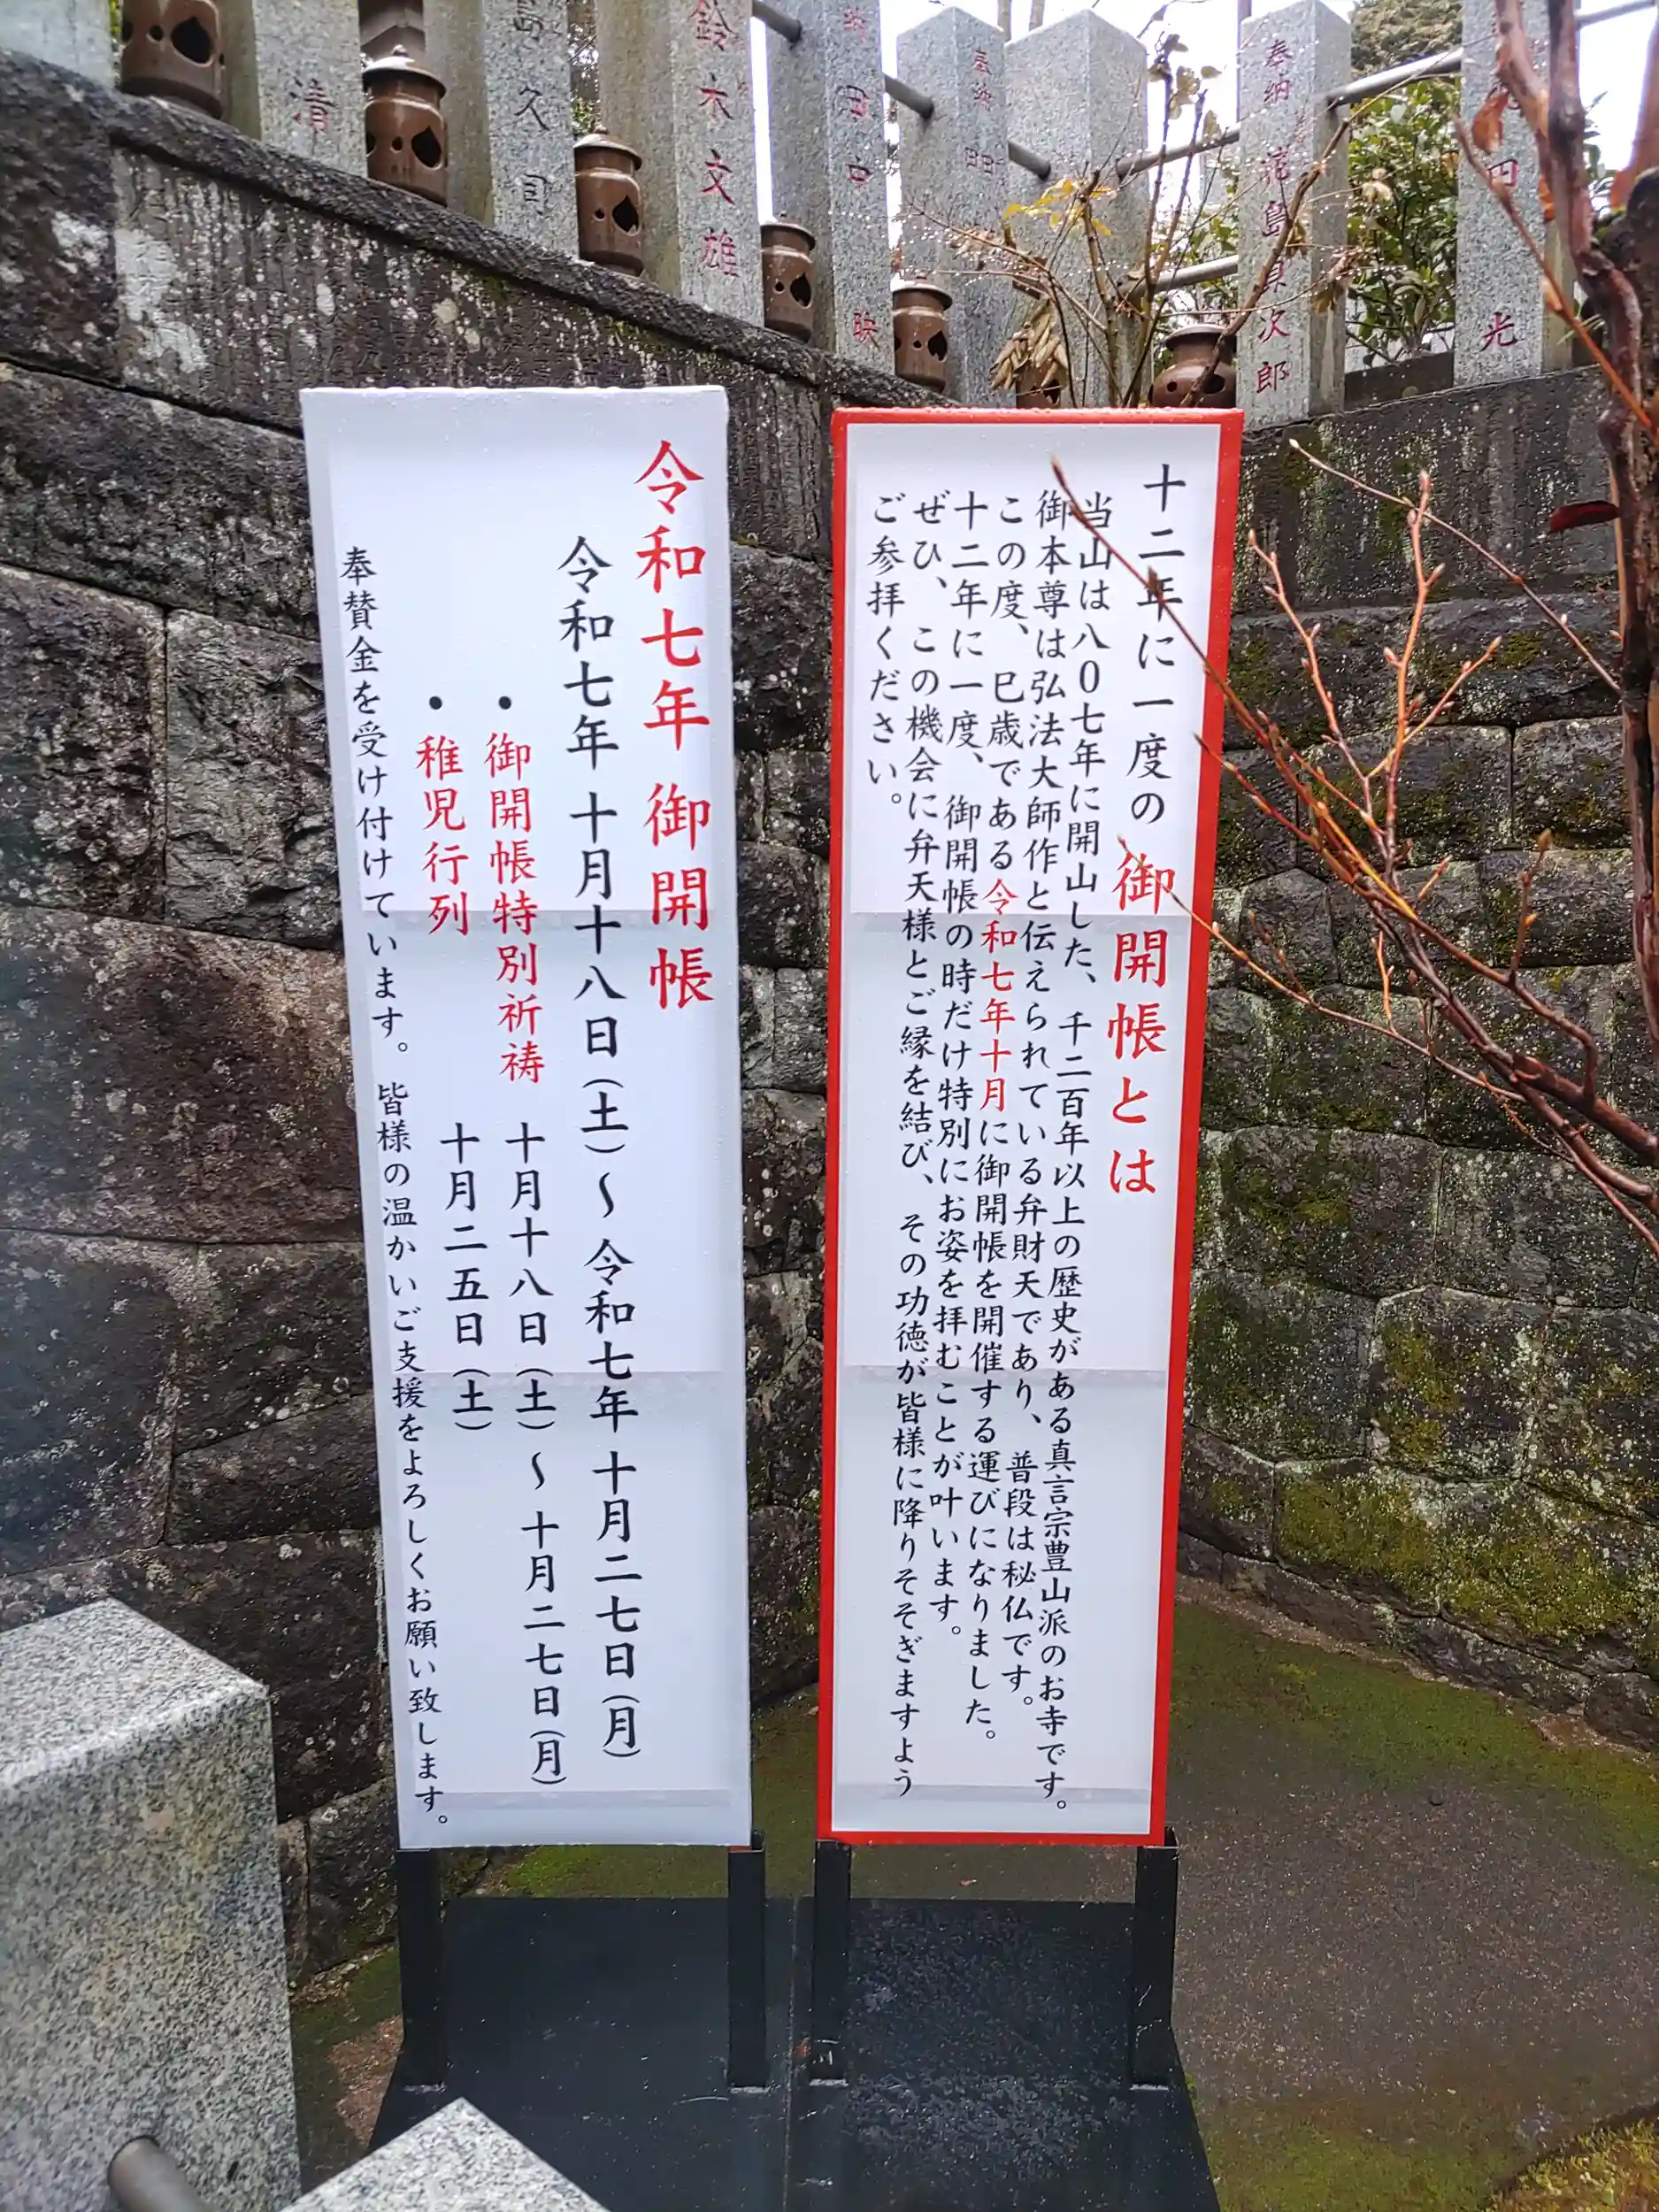 十二年に一度の 御開帳とは
当山は八0七年に開山した、千二百年以上の歴史がある真言宗豊山派のお寺です。
御本尊は弘法大師作と伝えられている弁財天であり、普段は秘仏です。
この度、巳歳である令和七年十月に御開帳を開催する運びになりました。
十二年に一度、御開帳の時だけ特別にお姿を拝むことが叶います。
ぜひ、この機会に弁天様とご縁を結び、その功徳が皆様に降りそそぎますよう
ご参拝ください。
令和七年 御開帳
令和七年 十月十八日(土)～令和七年 十月二七日(月)
・御開帳特別祈祷 十月十八日(土)～十月二七日(月)
・稚児行列 十月二五日(土)
奉賛金を受け付けています。皆様の温かいご支援をよろしくお願い致します。
光
奉納
次郎
鈴木文雄
島久司
清